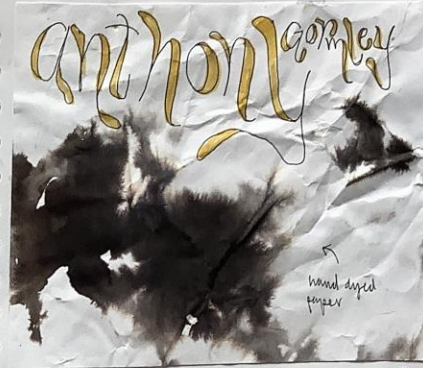 anthony gormley
hand dyed
paper